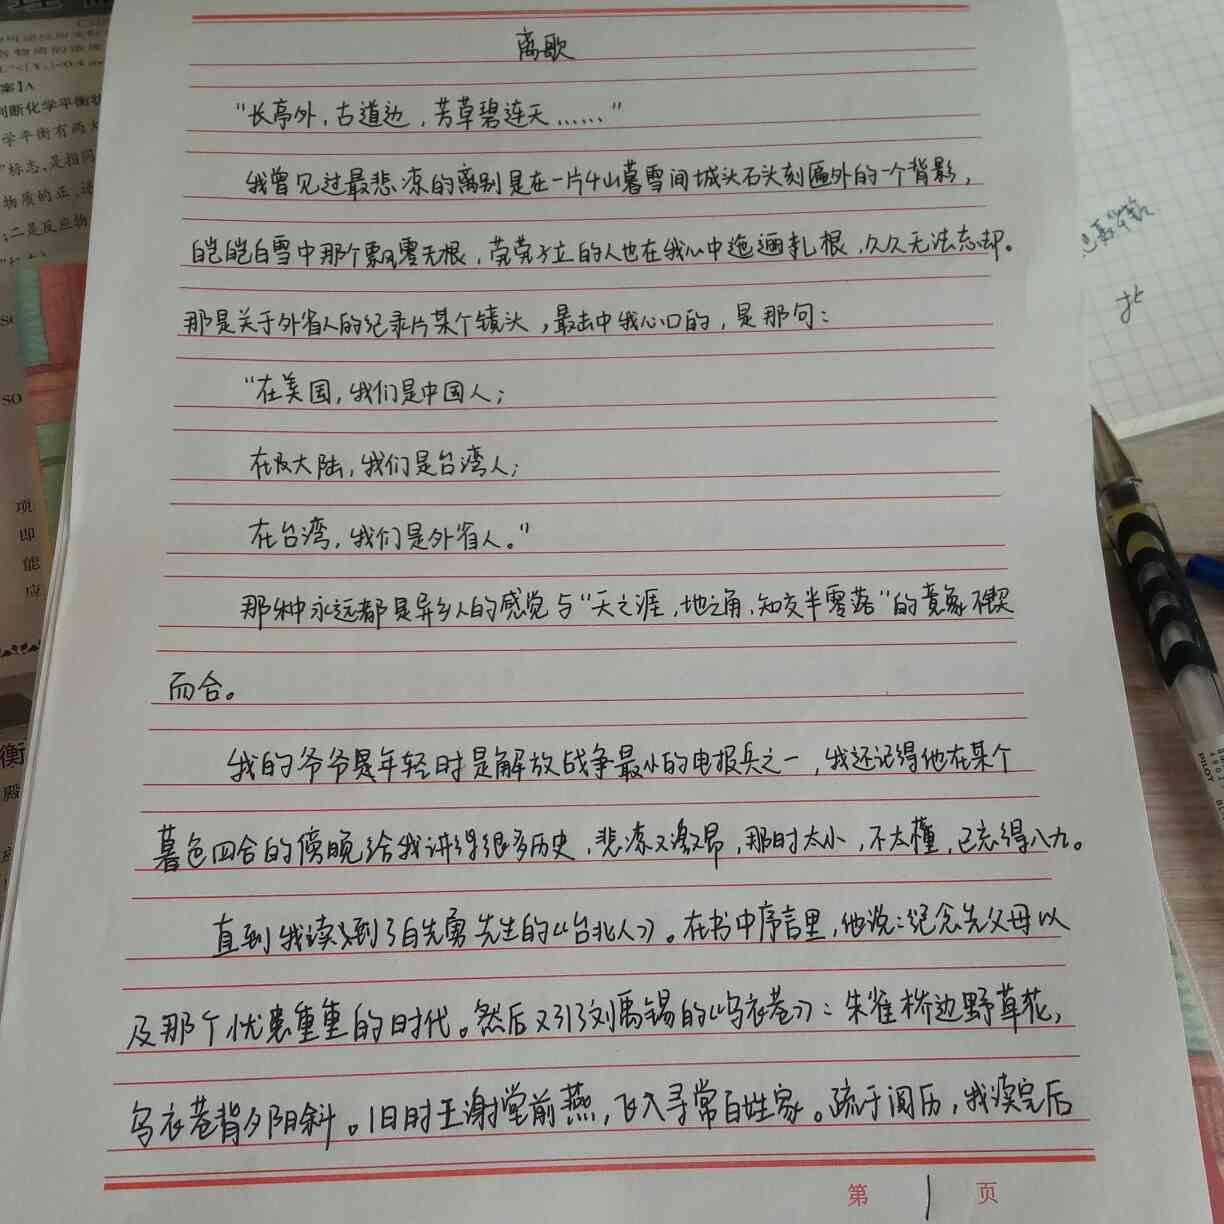 离歌
“长亭外，古道边，芳草碧连天……”
我曾见过最悲凉的离别是在一片千山暮雪间城头石头刻匾外的一个背影，
皑皑白雪中那个飘零无根，茕茕孑立的人也在我心中迤逦扎根，久久无法忘却。
那是关于外省人的纪录片某个镜头，最击中我心口的，是那句：
“在美国，我们是中国人；
在大陆，我们是台湾人；
在台湾，我们是外省人。”
那种永远都是异乡人的感觉与“天之涯，地之角，知交半零落”的意象不谋
而合。
我的爷爷是年轻时是解放战争最小的电报兵之一，我还记得他在某个
暮色四合的傍晚给我讲得很多历史，悲凉又激昂，那时太小，不太懂，已忘得八九。
直到我读到了白先勇先生的《台北人》。在书中序言里，他说：纪念先父母以
及那个忧患重重的时代。然后又引了刘禹锡的《乌衣巷》：朱雀桥边野草花，
乌衣巷背夕阳斜。旧时王谢堂前燕，飞入寻常百姓家。疏于阅历，我读完后
第 1 页
北
PILOT
项
即
能
应
衡
殿
SO
案】A
判断化学平衡状
学平衡有两大
标志，是指同
物质的正、逆
；二是反应物